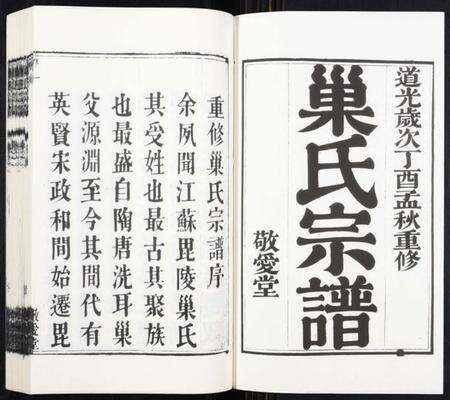 道光歲次丁酉孟秋重修
巢氏宗譜
敬愛堂
重修巢氏宗譜序
余夙聞江蘇毘陵巢氏
其受姓也最古其聚族
也最盛自陶唐洗耳巢
父源淵至今其間代有
英賢宋政和間始遷毘
敬愛堂